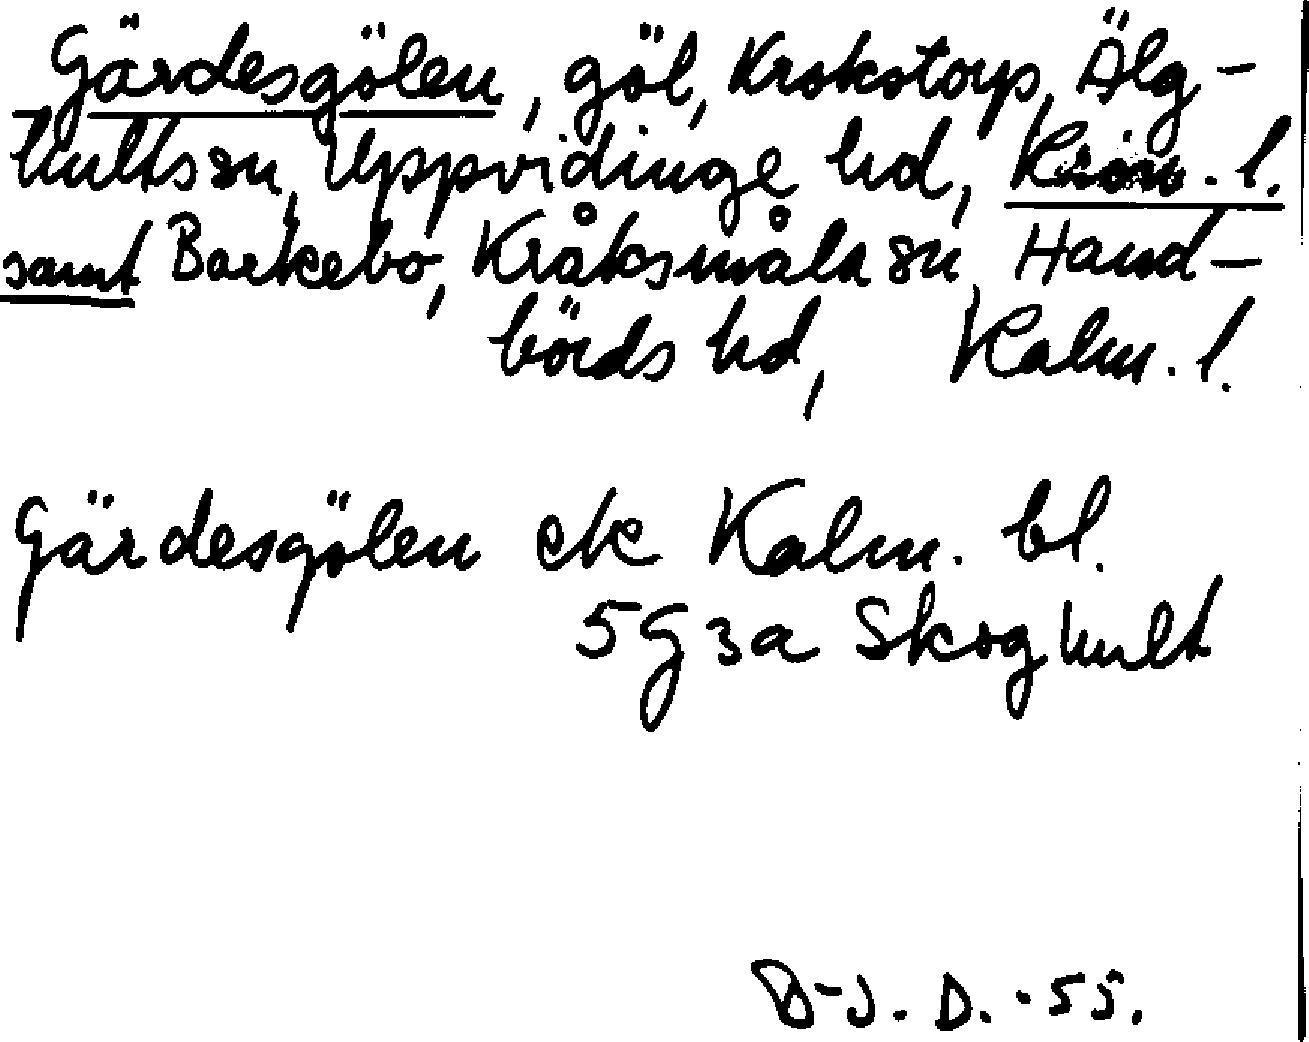 Gärdesgölen, göl, Krokstorp, Älg-
hults sn, Uppvidinge hd, Kron. l.
samt Barkebo, Kråksmåla sn, Hand-
börds hd, Kalm. l.
Gärdesgölen ek Kalm. bl.
5G3a Skoghult
B-J. D. -55.